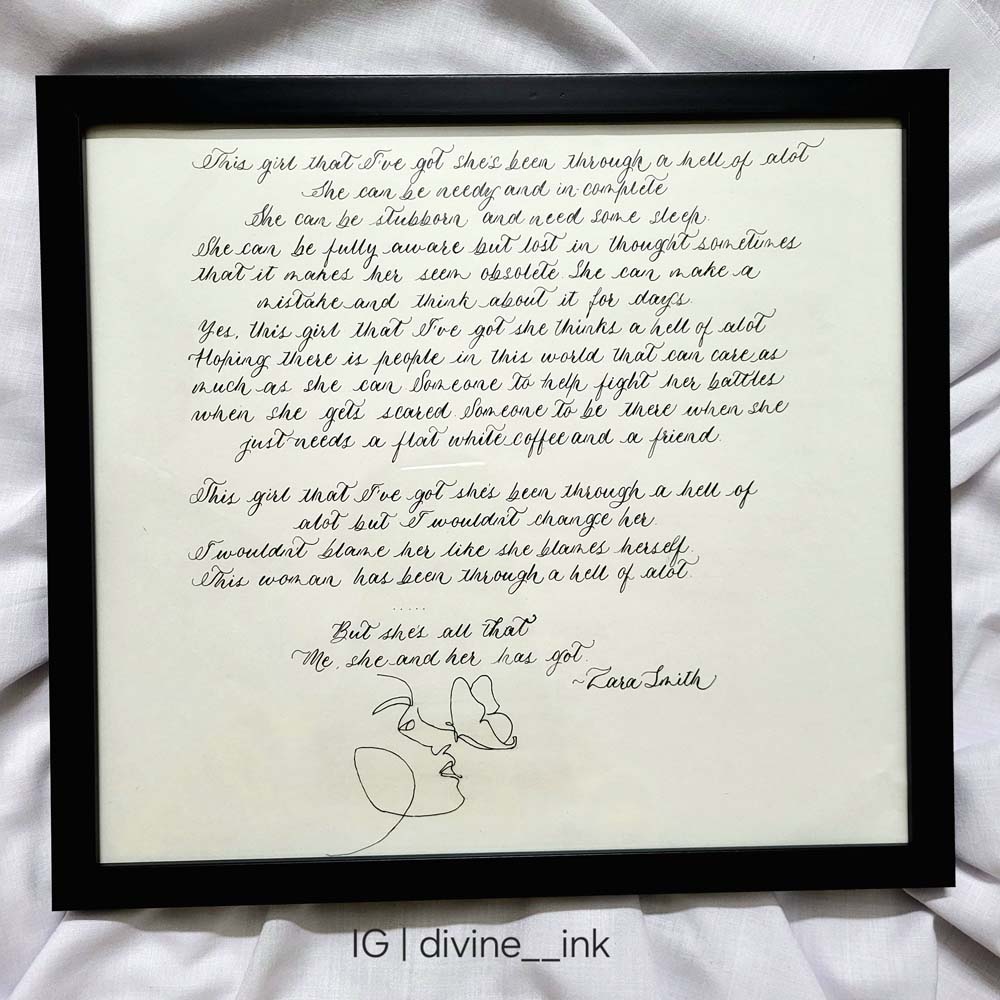 This girl that I've got she's been through a hell of alot
She can be needy and in-complete
She can be stubborn and need some sleep.
She can be fully aware but lost in thought sometimes
that it makes her seem obsolete. She can make a
mistake and think about it for days.
Yes, this girl that I've got she thinks a hell of alot
Hoping there is people in this world that can care as
much as she can Someone to help fight her battles
when she gets scared. Someone to be there when she
just needs a flat white coffee and a friend.
This girl that I've got she's been through a hell of
alot but I wouldn't change her.
I wouldn't blame her like she blames herself.
This woman has been through a hell of alot.
.....
But she's all that
Me, she and her has got.
~Zara Smith
IG | divine__ink